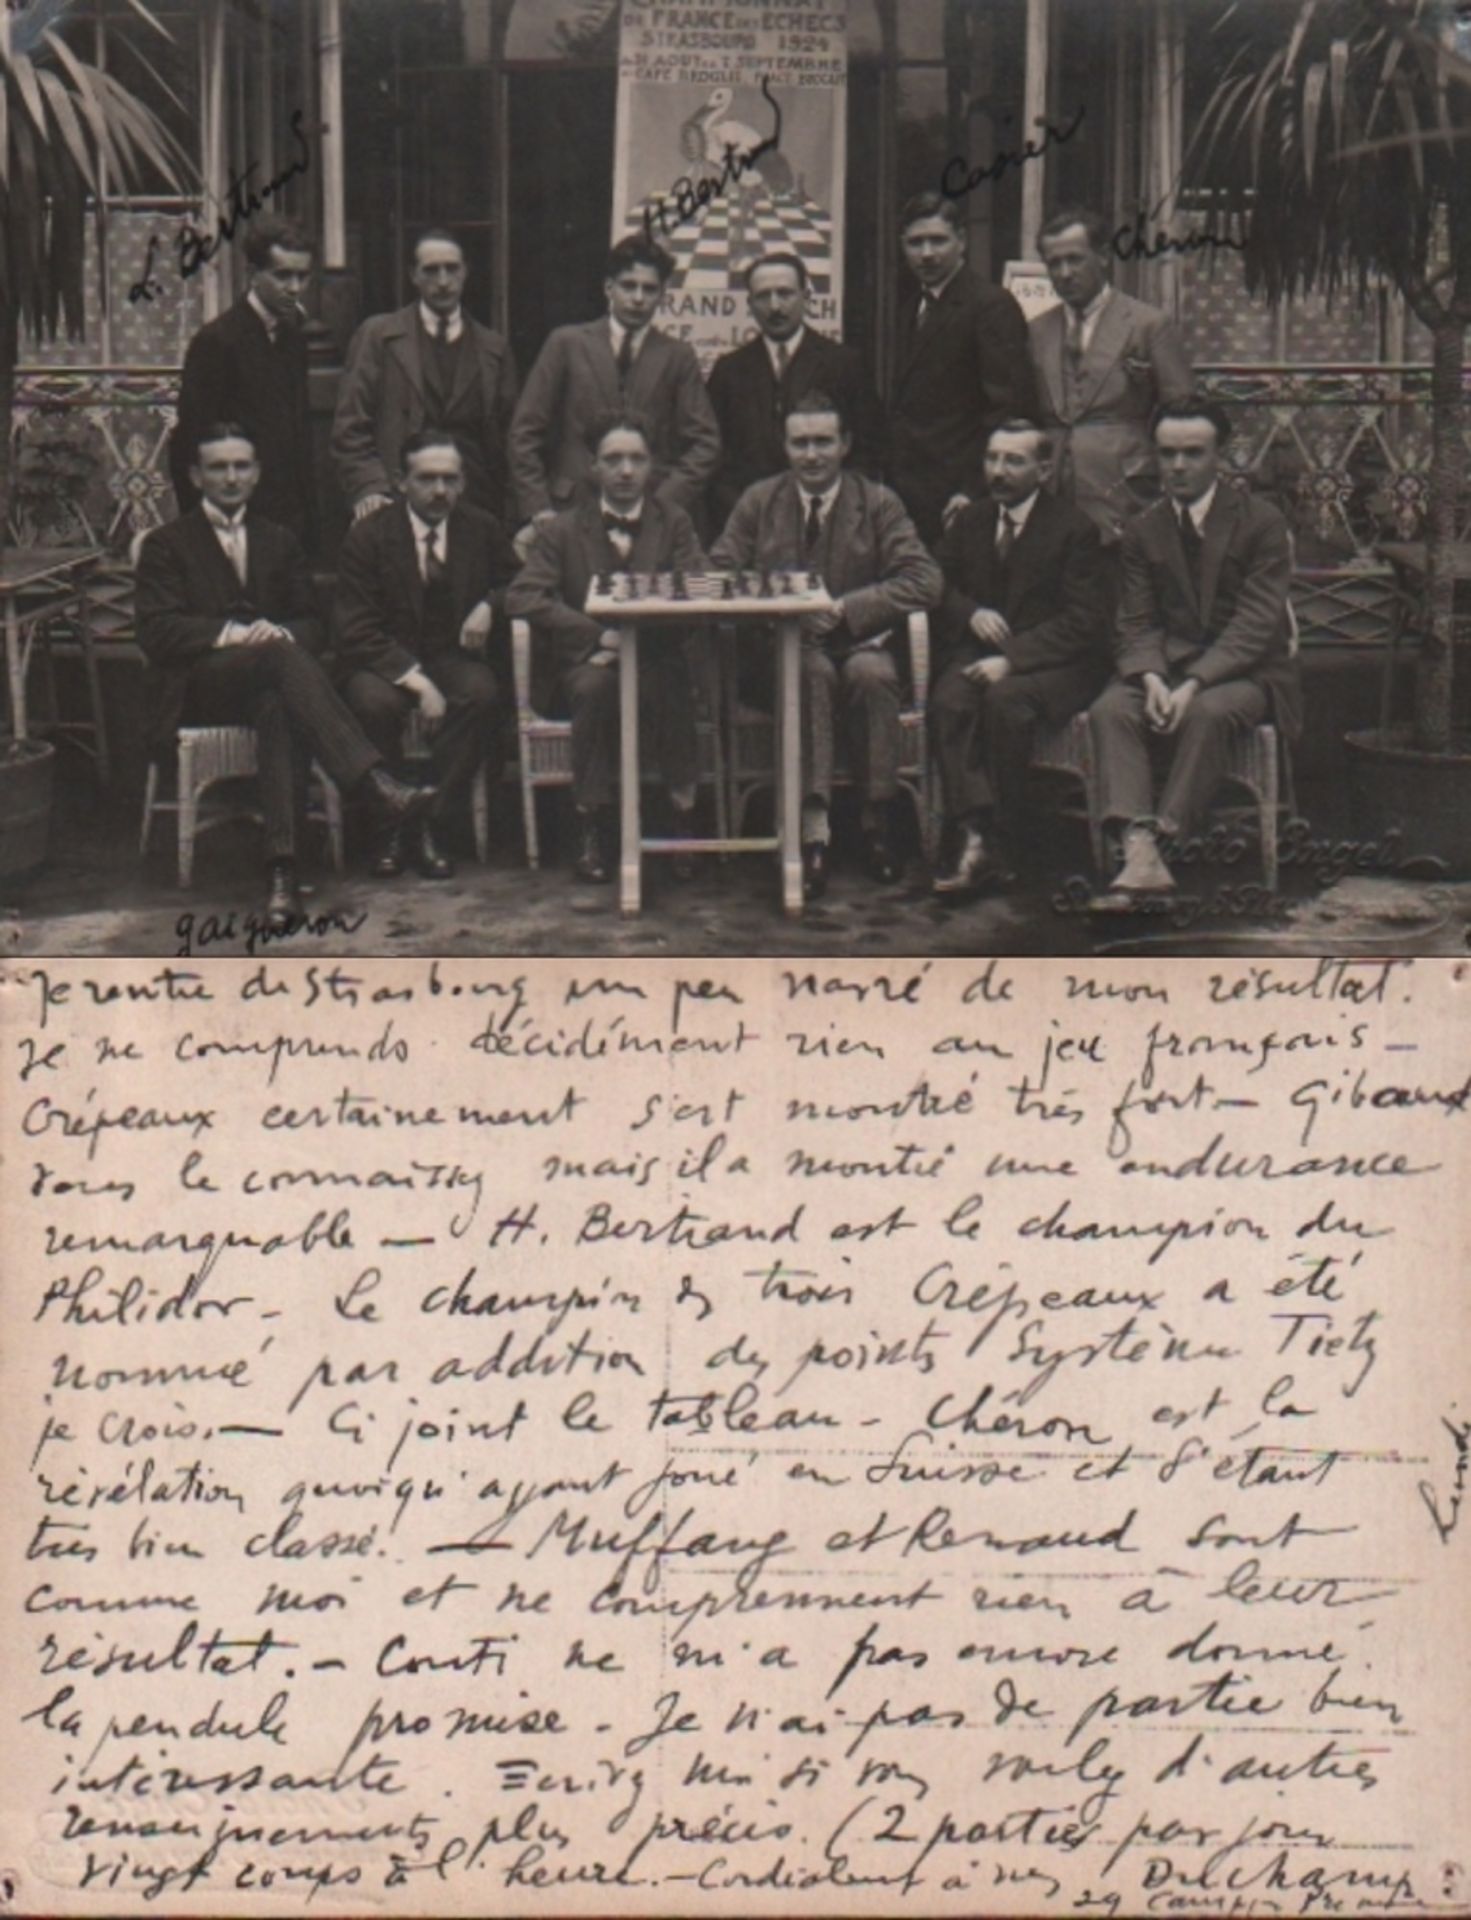 CHAMPIONNAT
DE FRANCE DES ECHECS
STRASBOURG 1924
31 AOUT AU 7 SEPTEMBRE
CAFÉ BROGLIE, PLACE BROGLIE
L. Bertrand
H. Bertrand
Casier
Chéron
GRAND CH
Photo Engel
Strasbourg
gasqueron
Je rentre de Strasbourg un peu navré de mon résultat.
Je ne comprends décidément rien au jeu français —
Crépeaux certainement s'est montré très fort — Gibaud
vous le connaissez mais il a montré une endurance
remarquable — H. Bertrand est le champion du
Philidor — Le champion des trois Crépeaux a été
nommé par addition des points Système Tietz
je crois. — Ci joint le tableau — Chéron est la
révélation quoiqu'ayant joué en Suisse et s'étant
très bien classé. — Muffang et Renaud sont
comme moi et ne comprennent rien à leur
résultat. — Conti ne m'a pas encore donné
la pendule promise — Je n'ai pas de partie bien
intéressante. Ecrivez moi si vous voulez d'autres
renseignements plus précis. (2 parties par jour
vingt coups à l'heure. — Cordialement à vous Duchamp
29 Campagne Première
Lundi